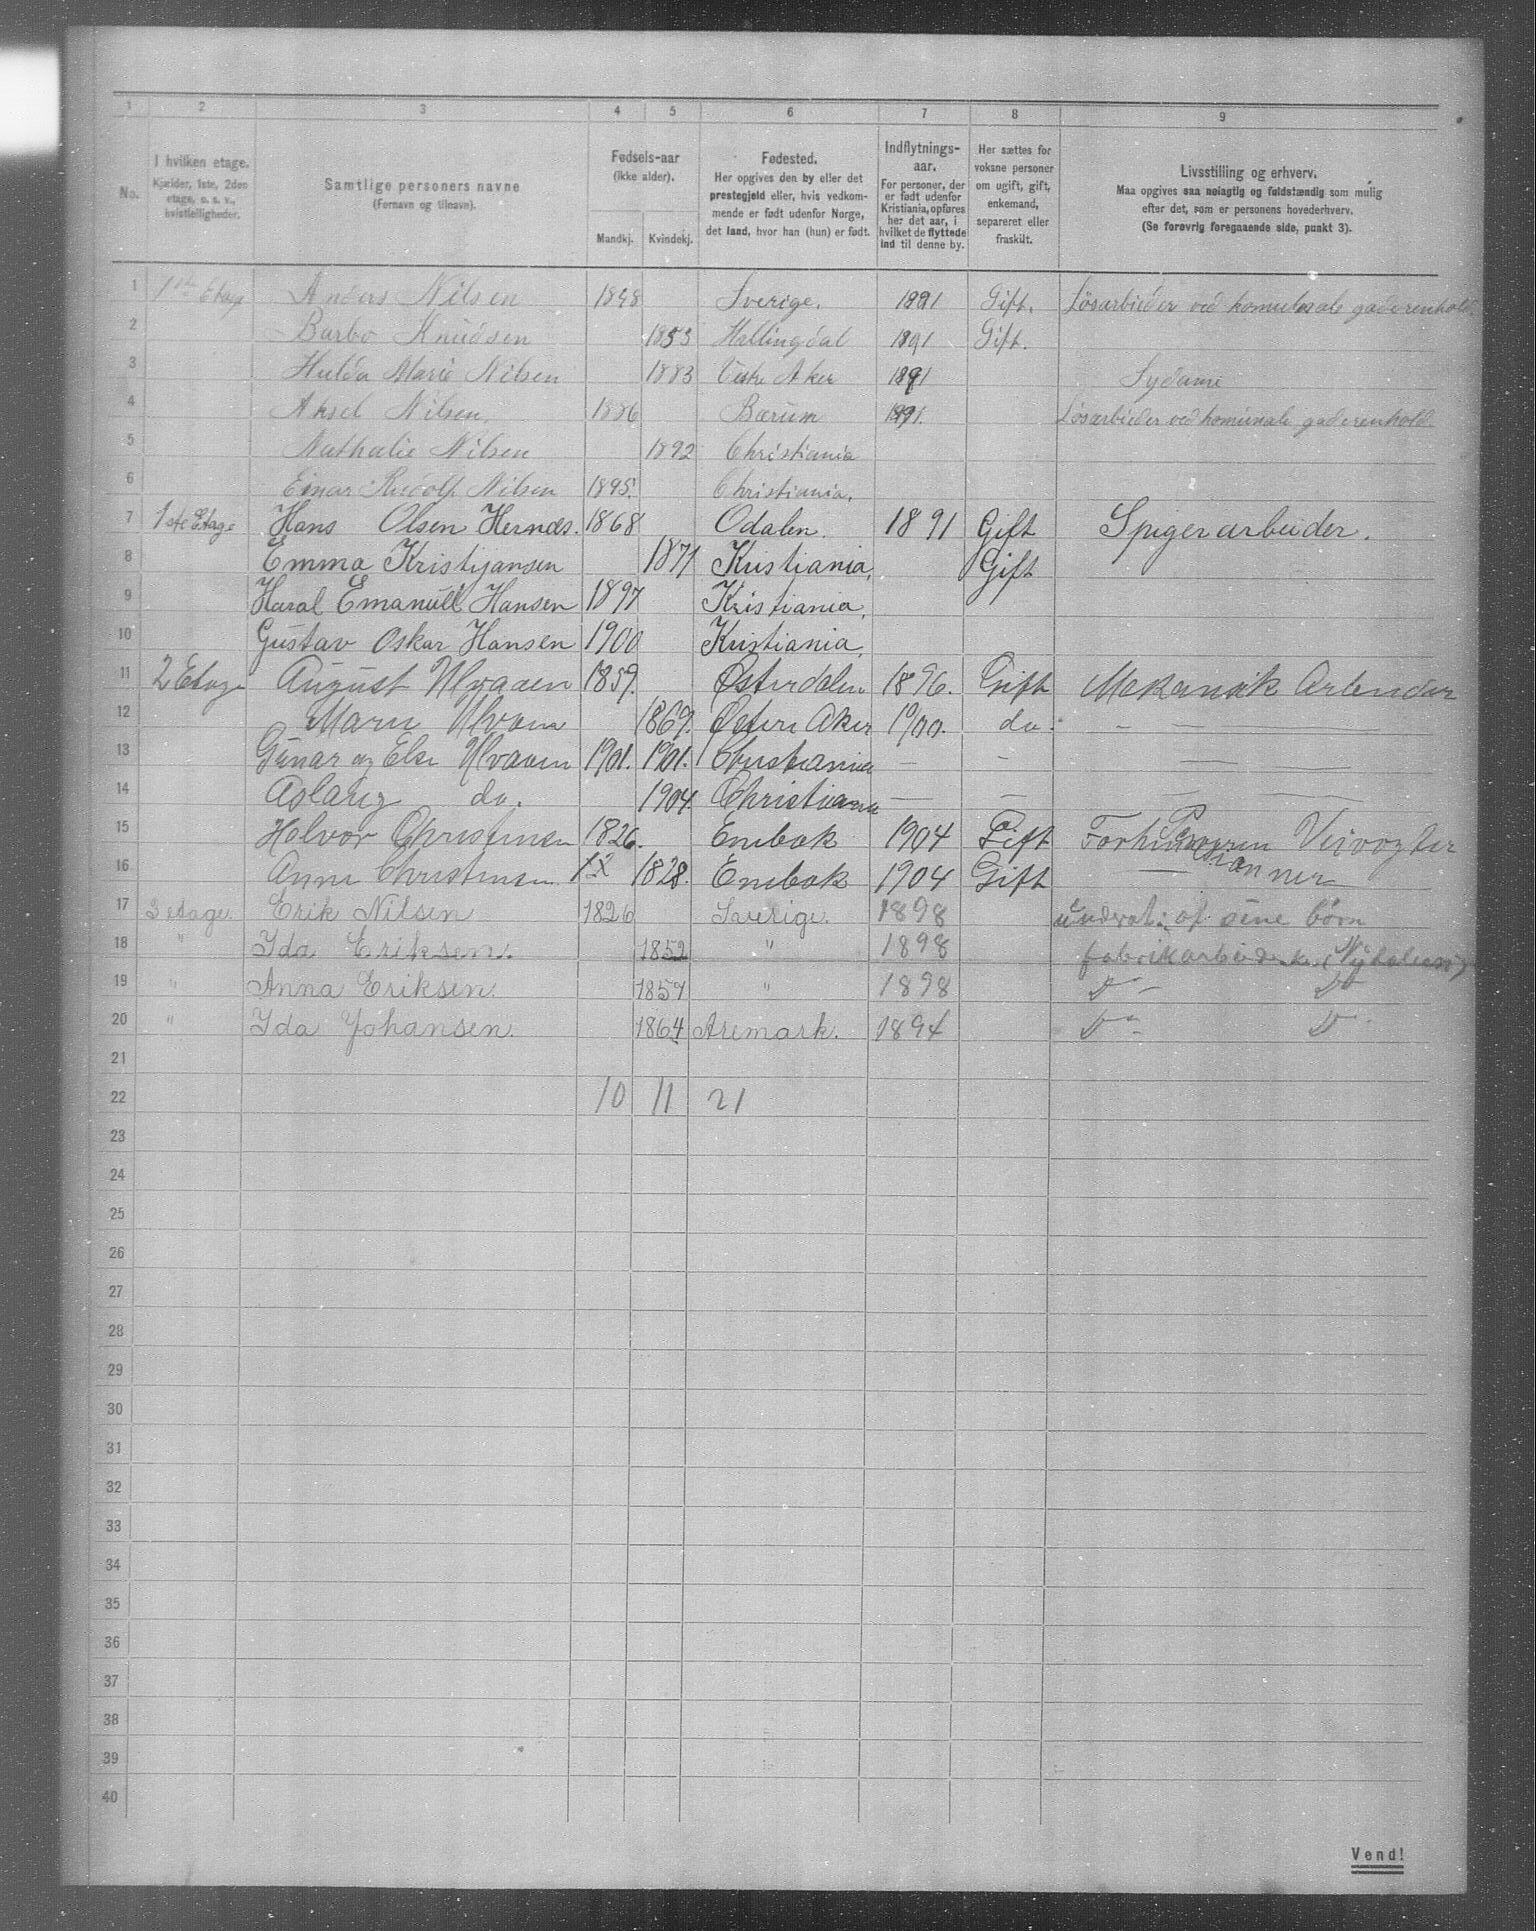 1 2 3 4 5 6 7 8 9
No.
I hvilken etage.
Kjælder, 1ste, 2den
etage, o. s. v.,
kvistleiligheder.
Samtlige personers navne
(Fornavn og tilnavn).
Fødsels-aar
(ikke alder).
Mandkj. Kvindekj.
Fødested.
Her opgives den by eller det
prestegjeld eller, hvis vedkom-
mende er født udenfor Norge,
det land, hvor han (hun) er født.
Indflytnings-
aar.
For personer, der
er født udenfor
Kristiania, opføres
her det aar, i
hvilket de flyttede
ind til denne by.
Her sættes for
voksne personer
om ugift, gift,
enkemand,
separeret eller
fraskilt.
Livsstilling og erhverv.
Maa opgives saa nøiagtig og fuldstændig som mulig
efter det, som er personens hovederhverv.
(Se forøvrig foregaaende side, punkt 3).
1 1ste Etage Anders Nilsen 1848 Sverige. 1891 Gift. Løsarbieder ved komunale gaderenhold.
2 Barbo Knudsen 1853 Hallingdal 1891 Gift.
3 Hulda Marie Nilsen 1883 Vestre Aker 1891 Sydame
4 Aksel Nilsen. 1886 Bærum 1891. Løsarbieder ved komunale gaderenhold.
5 Nathalie Nilsen 1892 Christiania
6 Einar Rudolf Nilsen 1895. Christiania.
7 1ste Etage Hans Olsen Hernæs. 1868 Odalen. 1891 Gift Spigerarbeider.
8 Emma Kristijansen 1871 Kristiania. Gift
9 Haral Emanuel Hansen 1897 Kristiania.
10 Gustav Oskar Hansen 1900 Kristiania.
11 2 Etage August Ulvaaen 1859. Østerdalen 1896. Gift Mekanisk Arbeider
12 Marie Ulvaaen 1869. Østre Aker 1900. do. - —
13 Gunar og Else Ulvaaen 1901. 1901. Christiania — - —
14 Aslaug do. 1904. Christiania — — —
15 Halvor Christensen 1826. Enebak 1904 Gift Forhenværen Veivogter
16 Anne Christensen 1828. Enebak 1904 Gift —
17 3 etage. Erik Nilsen 1826 Sverige. 1898 underst. af sine børn
18 " Ida Eriksen. 1852 " 1898 fabrikarbeiderske (Nydalen)
19 " Anna Eriksen. 1857 " 1898 Do Do
20 " Ida Johansen. 1864 Aremark. 1894 Do Do
21
22 10 11 21
23
24
25
26
27
28
29
30
31
32
33
34
35
36
37
38
39
40
Vend!